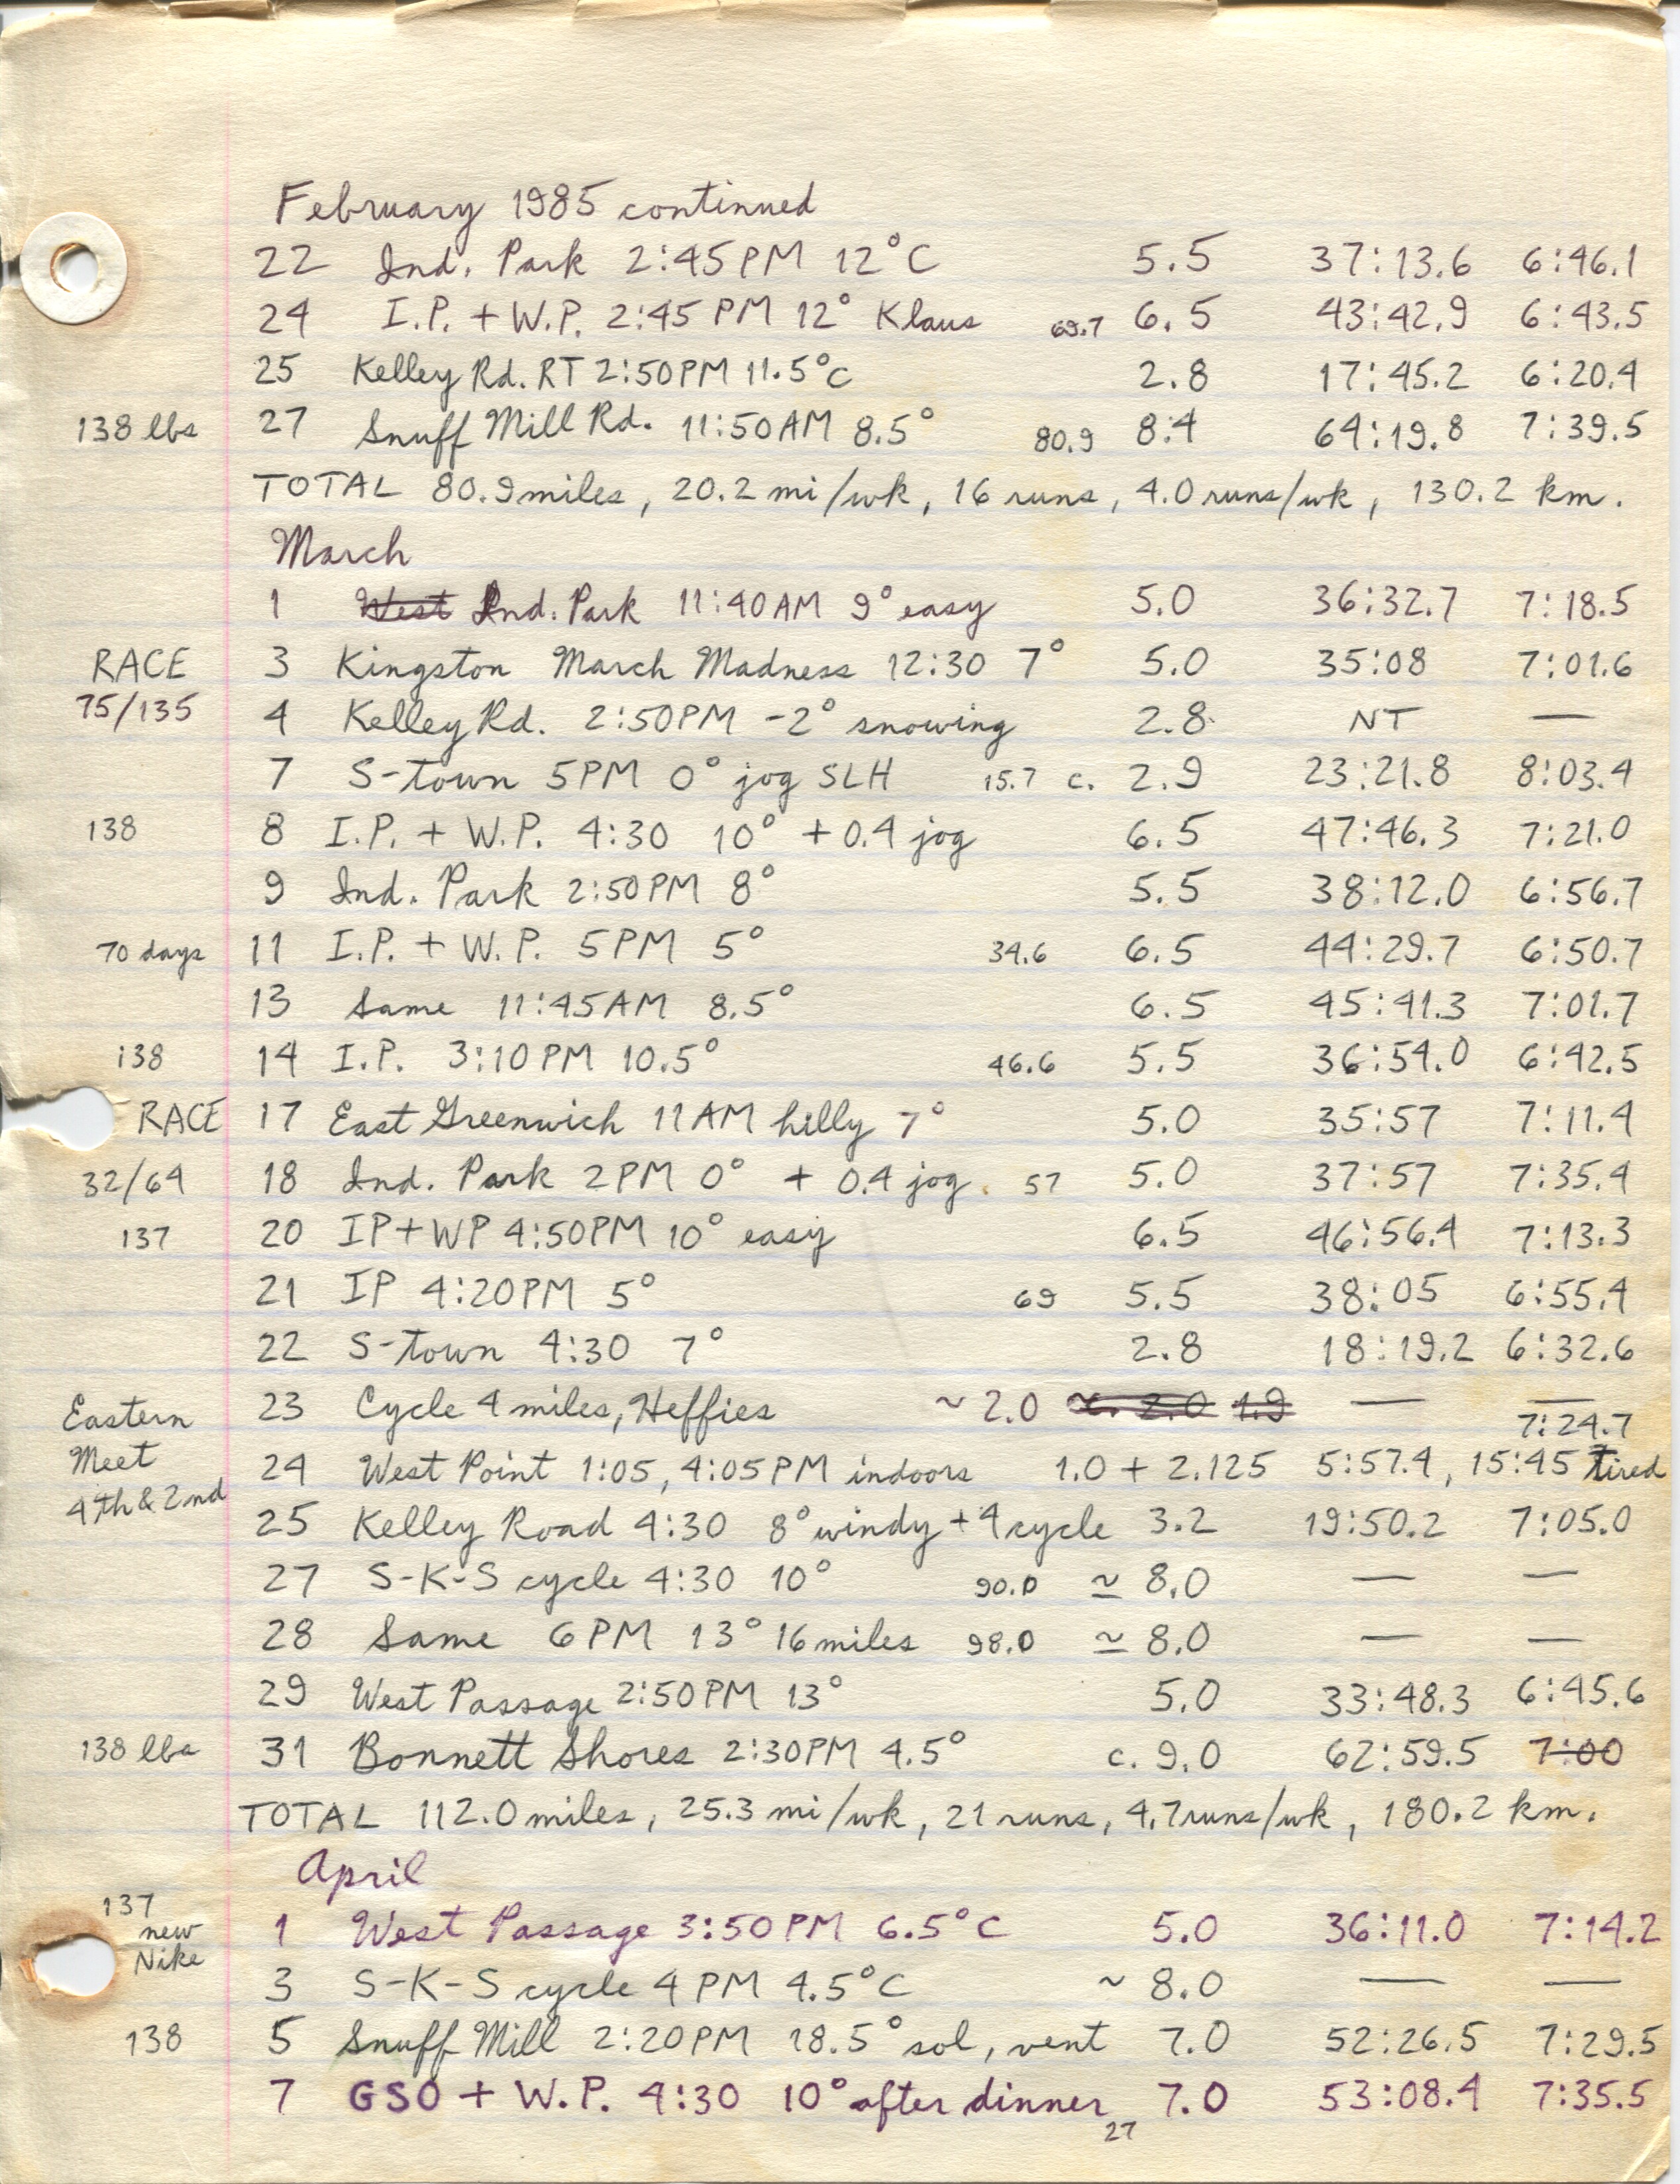 February 1985 continued
22 Ind. Park 2:45 PM 12°C 5.5 37:13.6 6:46.1
24 I.P. + W.P. 2:45 PM 12° Klaus 69.7 6.5 43:42.9 6:43.5
25 Kelley Rd. RT 2:50 PM 11.5°C 2.8 17:45.2 6:20.4
138 lbs 27 Snuff Mill Rd. 11:50 AM 8.5° 80.9 8.4 64:19.8 7:39.5
TOTAL 80.9 miles, 20.2 mi/wk, 16 runs, 4.0 runs/wk, 130.2 km.
March
1 West Ind. Park 11:40 AM 9° easy 5.0 36:32.7 7:18.5
RACE 3 Kingston March Madness 12:30 7° 5.0 35:08 7:01.6
75/135 4 Kelley Rd. 2:50 PM -2° snowing 2.8 NT —
7 S-town 5 PM 0° jog SLH 15.7 c. 2.9 23:21.8 8:03.4
138 8 I.P. + W.P. 4:30 10° + 0.4 jog 6.5 47:46.3 7:21.0
9 Ind. Park 2:50 PM 8° 5.5 38:12.0 6:56.7
70 days 11 I.P. + W.P. 5 PM 5° 34.6 6.5 44:29.7 6:50.7
13 Same 11:45 AM 8.5° 6.5 45:41.3 7:01.7
138 14 I.P. 3:10 PM 10.5° 46.6 5.5 36:54.0 6:42.5
RACE 17 East Greenwich 11 AM hilly 7° 5.0 35:57 7:11.4
32/64 18 Ind. Park 2 PM 0° + 0.4 jog. 57 5.0 37:57 7:35.4
137 20 IP + WP 4:50 PM 10° easy 6.5 46:56.4 7:13.3
21 IP 4:20 PM 5° 69 5.5 38:05 6:55.4
22 S-town 4:30 7° 2.8 18:19.2 6:32.6
23 Cycle 4 miles, Heffies ~ 2.0 ~. 2.0 1.9 — —
Eastern
Meet
4th & 2nd
7:24.7
24 West Point 1:05, 4:05 PM indoors 1.0 + 2.125 5:57.4, 15:45 Tired
25 Kelley Road 4:30 8° windy + 4 cycle 3.2 19:50.2 7:05.0
27 S-K-S cycle 4:30 10° 90.0 ≃ 8.0 — —
28 Same 6 PM 13° 16 miles 98.0 ≃ 8.0 — —
29 West Passage 2:50 PM 13° 5.0 33:48.3 6:45.6
138 lbs 31 Bonnett Shores 2:30 PM 4.5° c. 9.0 62:59.5 7:00
TOTAL 112.0 miles, 25.3 mi/wk, 21 runs, 4.7 runs/wk, 180.2 km.
April
137
new
Nike
1 West Passage 3:50 PM 6.5°C 5.0 36:11.0 7:14.2
3 S-K-S cycle 4 PM 4.5°C ~ 8.0 — —
138 5 Snuff Mill 2:20 PM 18.5° sol, vent 7.0 52:26.5 7:29.5
7 GSO + W.P. 4:30 10° after dinner 7.0 53:08.4 7:35.5
27